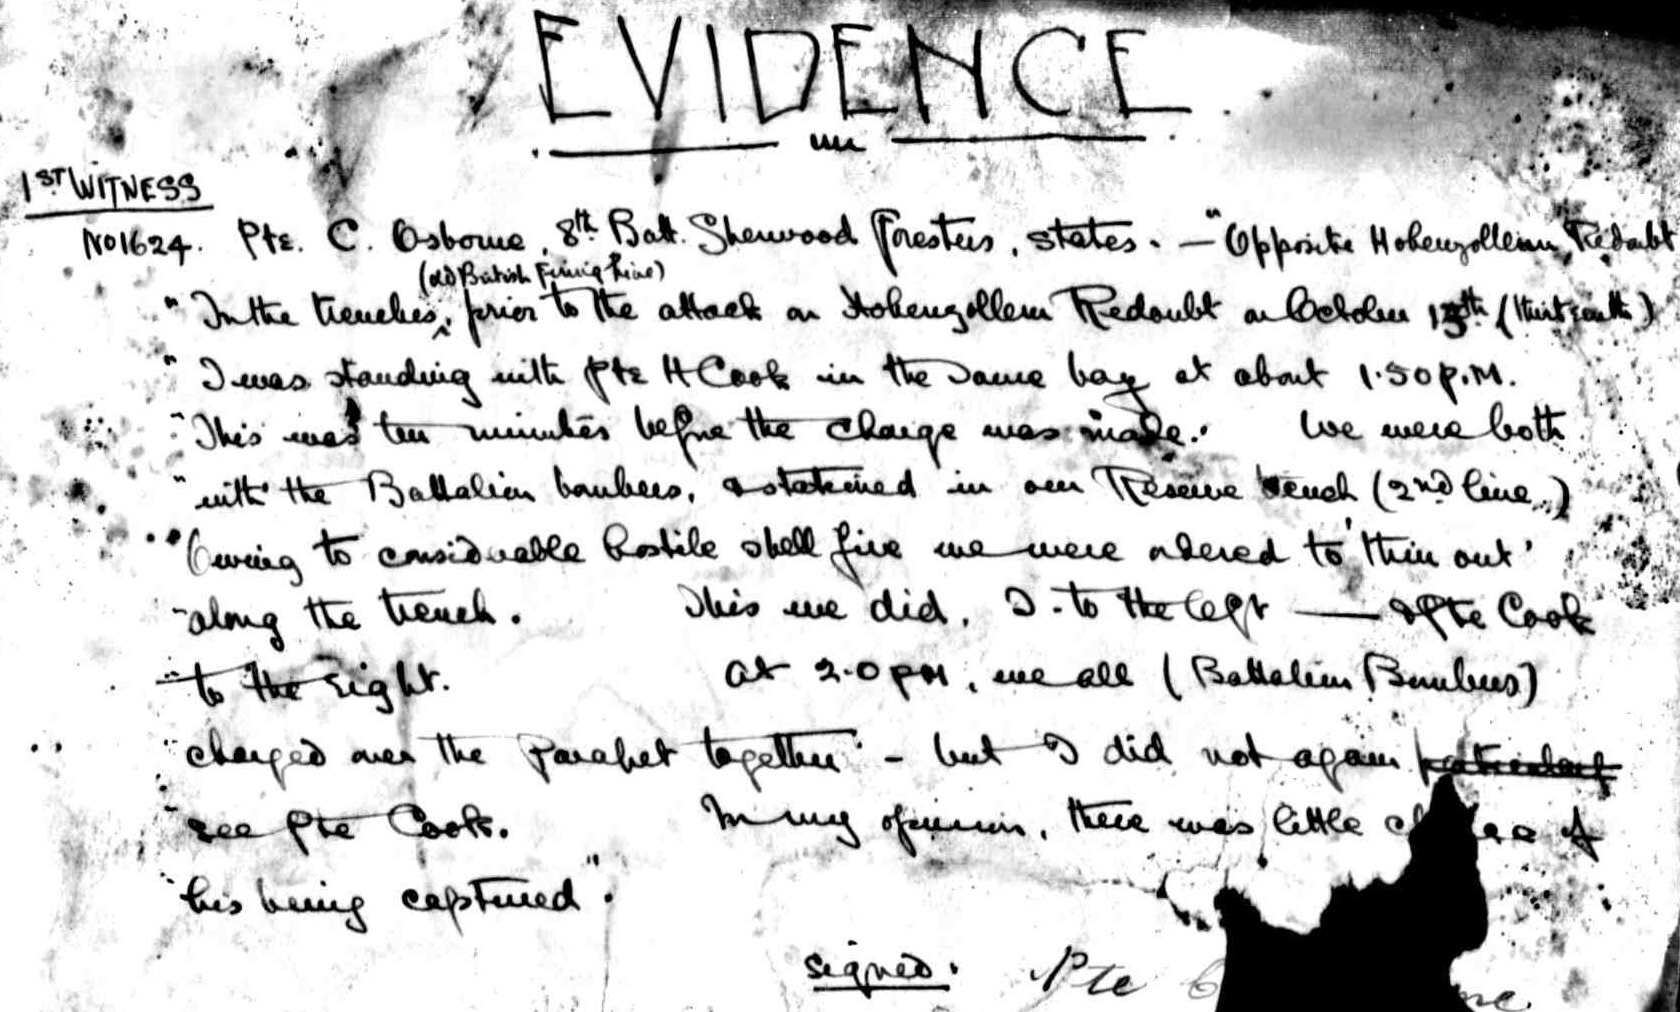 EVIDENCE
1ST WITNESS
No 1624. Pte. C. Osborne, 8th Batt. Sherwood Foresters, states. — "Opposite Hohenzollern Redoubt
(old British Firing Line)
"In the trenches, prior to the attack on Hohenzollern Redoubt on October 13th (thirteenth)
"I was standing with Pte H Cook in the same bay at about 1.50 p.m.
"This was ten minutes before the charge was made. We were both
"with the Battalion bombers, & stationed in our Reserve trench (2nd line.)
"Owing to considerable hostile shell fire we were ordered to 'thin out'
"along the trench. This we did, I to the left — & Pte Cook
"to the right. At 2.0 pm, we all (Battalion Bombers)
"charged over the parapet together - but I did not again
"see Pte Cook. In my opinion, there was little of
"his being captured".
signed. Pte